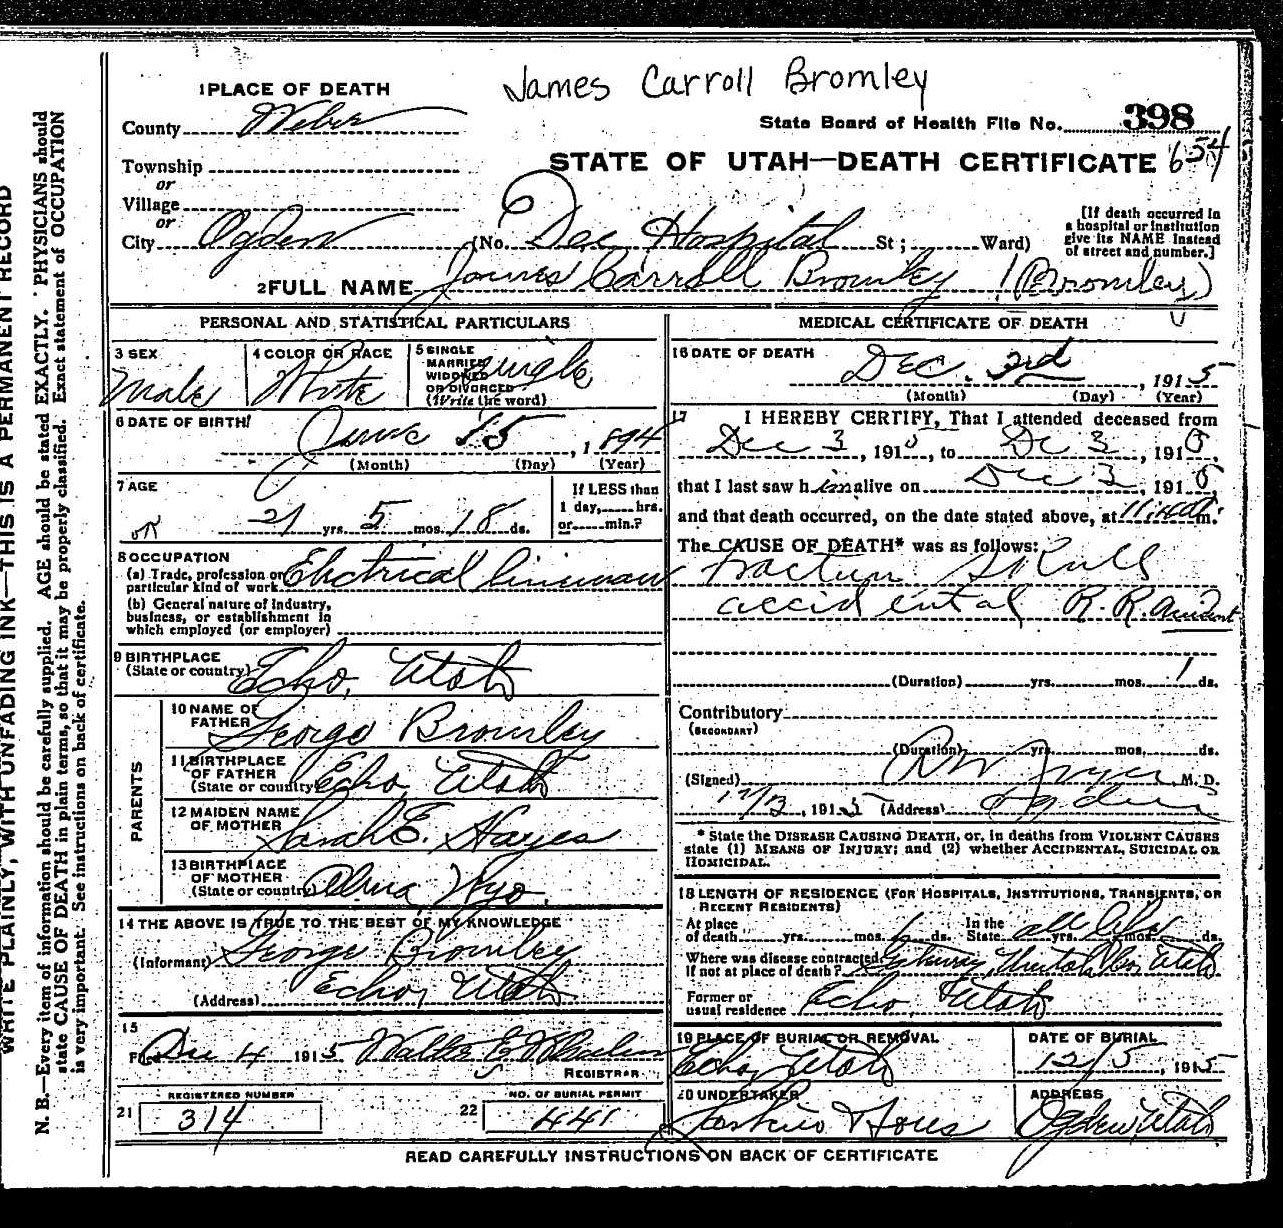 James Carroll Bromley
1 PLACE OF DEATH
County Weber
State Board of Health File No. 398
Township
STATE OF UTAH—DEATH CERTIFICATE 654
or
Village
or
City Ogden (No. Dee Hospital St ; Ward)
[If death occurred in
a hospital or institution
give its NAME instead
of street and number.]
2 FULL NAME James Carroll Bromley (Bromley)
PERSONAL AND STATISTICAL PARTICULARS
3 SEX
Male
4 COLOR OR RACE
White
5 SINGLE
MARRIED
WIDOWED
OR DIVORCED
(Write the word)
Single
6 DATE OF BIRTH
June 15, 1894
(Month) (Day) (Year)
7 AGE
21 yrs. 5 mos. 18 ds.
If LESS than
1 day, hrs.
or min.?
8 OCCUPATION
(a) Trade, profession or
particular kind of work Electrical lineman
(b) General nature of industry,
business, or establishment in
which employed (or employer)
9 BIRTHPLACE
(State or country) Echo, Utah
PARENTS
10 NAME OF
FATHER George Bromley
11 BIRTHPLACE
OF FATHER
(State or country) Echo Utah
12 MAIDEN NAME
OF MOTHER Sarah E. Hayes
13 BIRTHPLACE
OF MOTHER
(State or country) Alma Wyo.
14 THE ABOVE IS TRUE TO THE BEST OF MY KNOWLEDGE
(Informant) George Bromley
(Address) Echo, Utah
15
Filed Dec 4 1915
REGISTRAR
REGISTERED NUMBER
21 314
NO. OF BURIAL PERMIT
22 441
MEDICAL CERTIFICATE OF DEATH
16 DATE OF DEATH
Dec. 3rd, 1915
(Month) (Day) (Year)
17 I HEREBY CERTIFY, That I attended deceased from
Dec 3, 1915, to Dec 3, 1915,
that I last saw him alive on Dec 3, 1915
and that death occurred, on the date stated above, at m.
The CAUSE OF DEATH* was as follows:
Fracture Skull
accidental R.R. accident
(Duration) yrs. mos. 1 ds.
Contributory
(SECONDARY)
(Duration) yrs. mos. ds.
(Signed) M. D.
12/3, 1915 (Address) Ogden
* State the DISEASE CAUSING DEATH, or, in deaths from VIOLENT CAUSES
state (1) MEANS OF INJURY; and (2) whether ACCIDENTAL, SUICIDAL OR
HOMICIDAL.
18 LENGTH OF RESIDENCE (FOR HOSPITALS, INSTITUTIONS, TRANSIENTS, OR
RECENT RESIDENTS)
At place
of death yrs. mos. ds. In the
State all life yrs. mos. ds.
Where was disease contracted,
If not at place of death? Utah
Former or
usual residence Echo, Utah
19 PLACE OF BURIAL OR REMOVAL
Echo, Utah
DATE OF BURIAL
12/5, 1915
20 UNDERTAKER
Larkin & Sons
ADDRESS
Ogden, Utah
READ CAREFULLY INSTRUCTIONS ON BACK OF CERTIFICATE
WRITE PLAINLY, WITH UNFADING INK—THIS IS A PERMANENT RECORD
N. B.—Every item of information should be carefully supplied. AGE should be stated EXACTLY. PHYSICIANS should
state CAUSE OF DEATH in plain terms, so that it may be properly classified. Exact statement of OCCUPATION
is very important. See instructions on back of certificate.